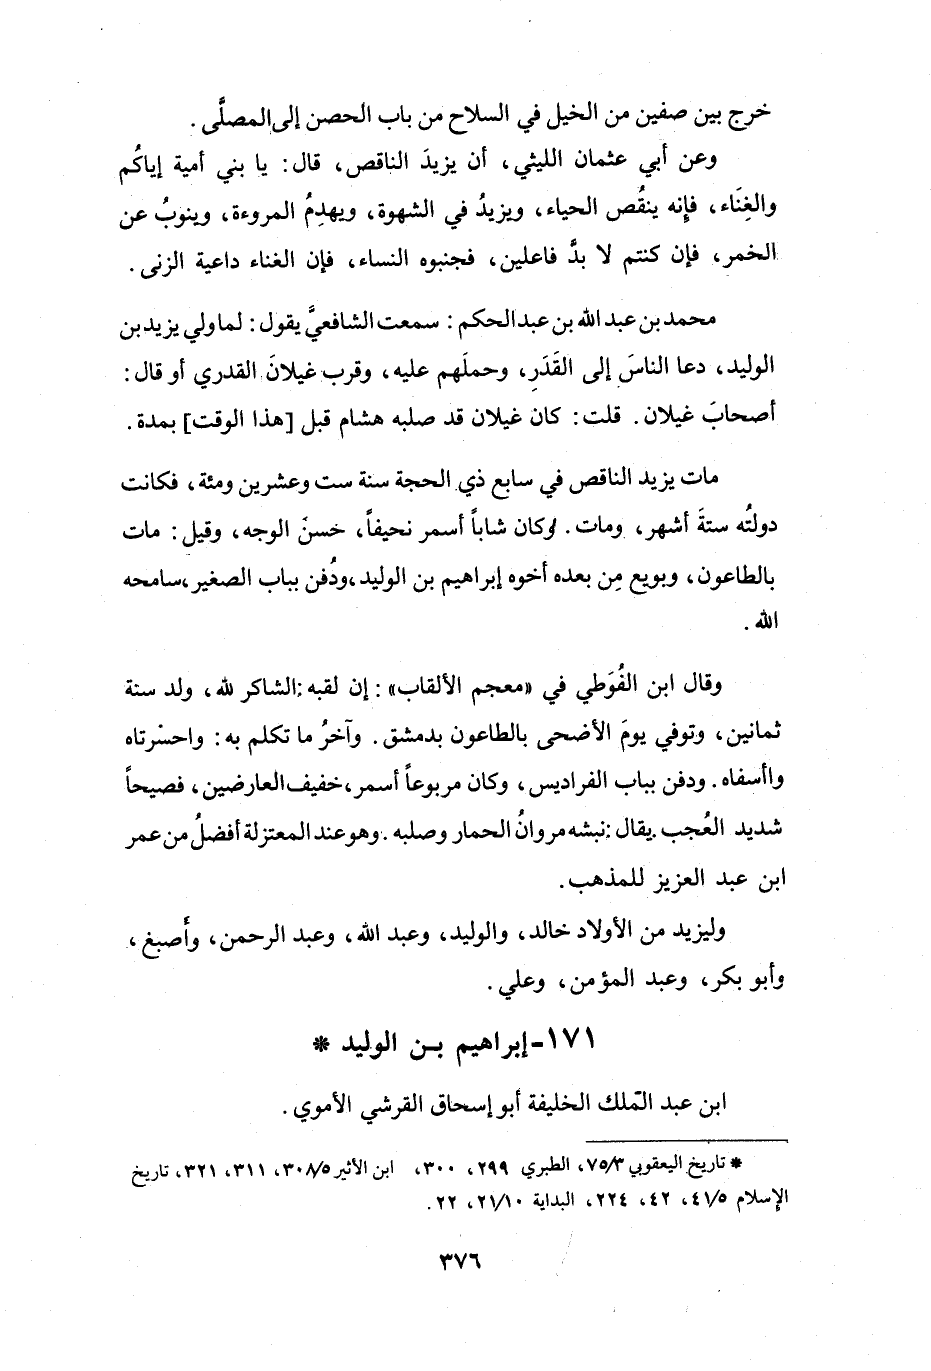 خرج بين صفين من الخيل في السلاح من باب الحصن إلى المصلَّى .
وعن أبي عثمان الليثي، أن يزيدَ الناقص، قال: يا بني أمية إياكُم
والغِنَاء، فإنه ينقُص الحياء، ويزيدُ في الشهوة، ويهدِمُ المروءة، وينوبُ عن
الخمر، فإن كنتم لا بدَّ فاعلين، فجنبوه النساء، فإن الغناء داعية الزنى .
محمد بن عبد الله بن عبد الحكم : سمعت الشافعيَّ يقول : لما ولي يزيد بن
الوليد، دعا الناسَ إلى القَدَرِ، وحملَهم عليه، وقرب غيلانَ القدري أو قال :
أصحابَ غيلان. قلت: كان غيلان قد صلبه هشام قبل [هذا الوقت] بمدة.
مات يزيد الناقص في سابع ذي الحجة سنة ست وعشرين ومئة، فكانت
دولتُه ستةَ أشهر، ومات. وكان شاباً أسمر نحيفاً، حسنَ الوجه، وقيل: مات
بالطاعون، وبويع مِن بعده أخوه إبراهيم بن الوليد، ودُفن بباب الصغير، سامحه
الله .
وقال ابن الفُوَطي في «معجم الألقاب» : إن لقبه : الشاكر لله، ولد سنة
ثمانين، وتوفي يومَ الأضحى بالطاعون بدمشق. وآخرُ ما تكلم به: واحسْرتاه
واأسفاه. ودفن بباب الفراديس، وكان مربوعاً أسمر، خفيف العارضين، فصيحاً
شديد العُجب. يقال : نبشه مروانُ الحمار وصلبه. وهو عند المعتزلة أفضلُ من عمر
ابن عبد العزيز للمذهب.
وليزيد من الأولاد خالد، والوليد، وعبد الله، وعبد الرحمن، وأَصبغ،
وأبو بكر، وعبد المؤمن، وعلي .
١٧١ - إبراهيم بن الوليد *
ابن عبد الملك الخليفة أبو إسحاق القرشي الأموي .
* تاريخ اليعقوبي ٧٥/٣، الطبري ٢٩٩، ٣٠٠، ابن الأثير ٣٠٨/٥، ٣١١، ٣٢١، تاريخ
الإسلام ٤١/٥، ٤٢، ٢٢٤، البداية ٢١/١٠، ٢٢.
٣٧٦